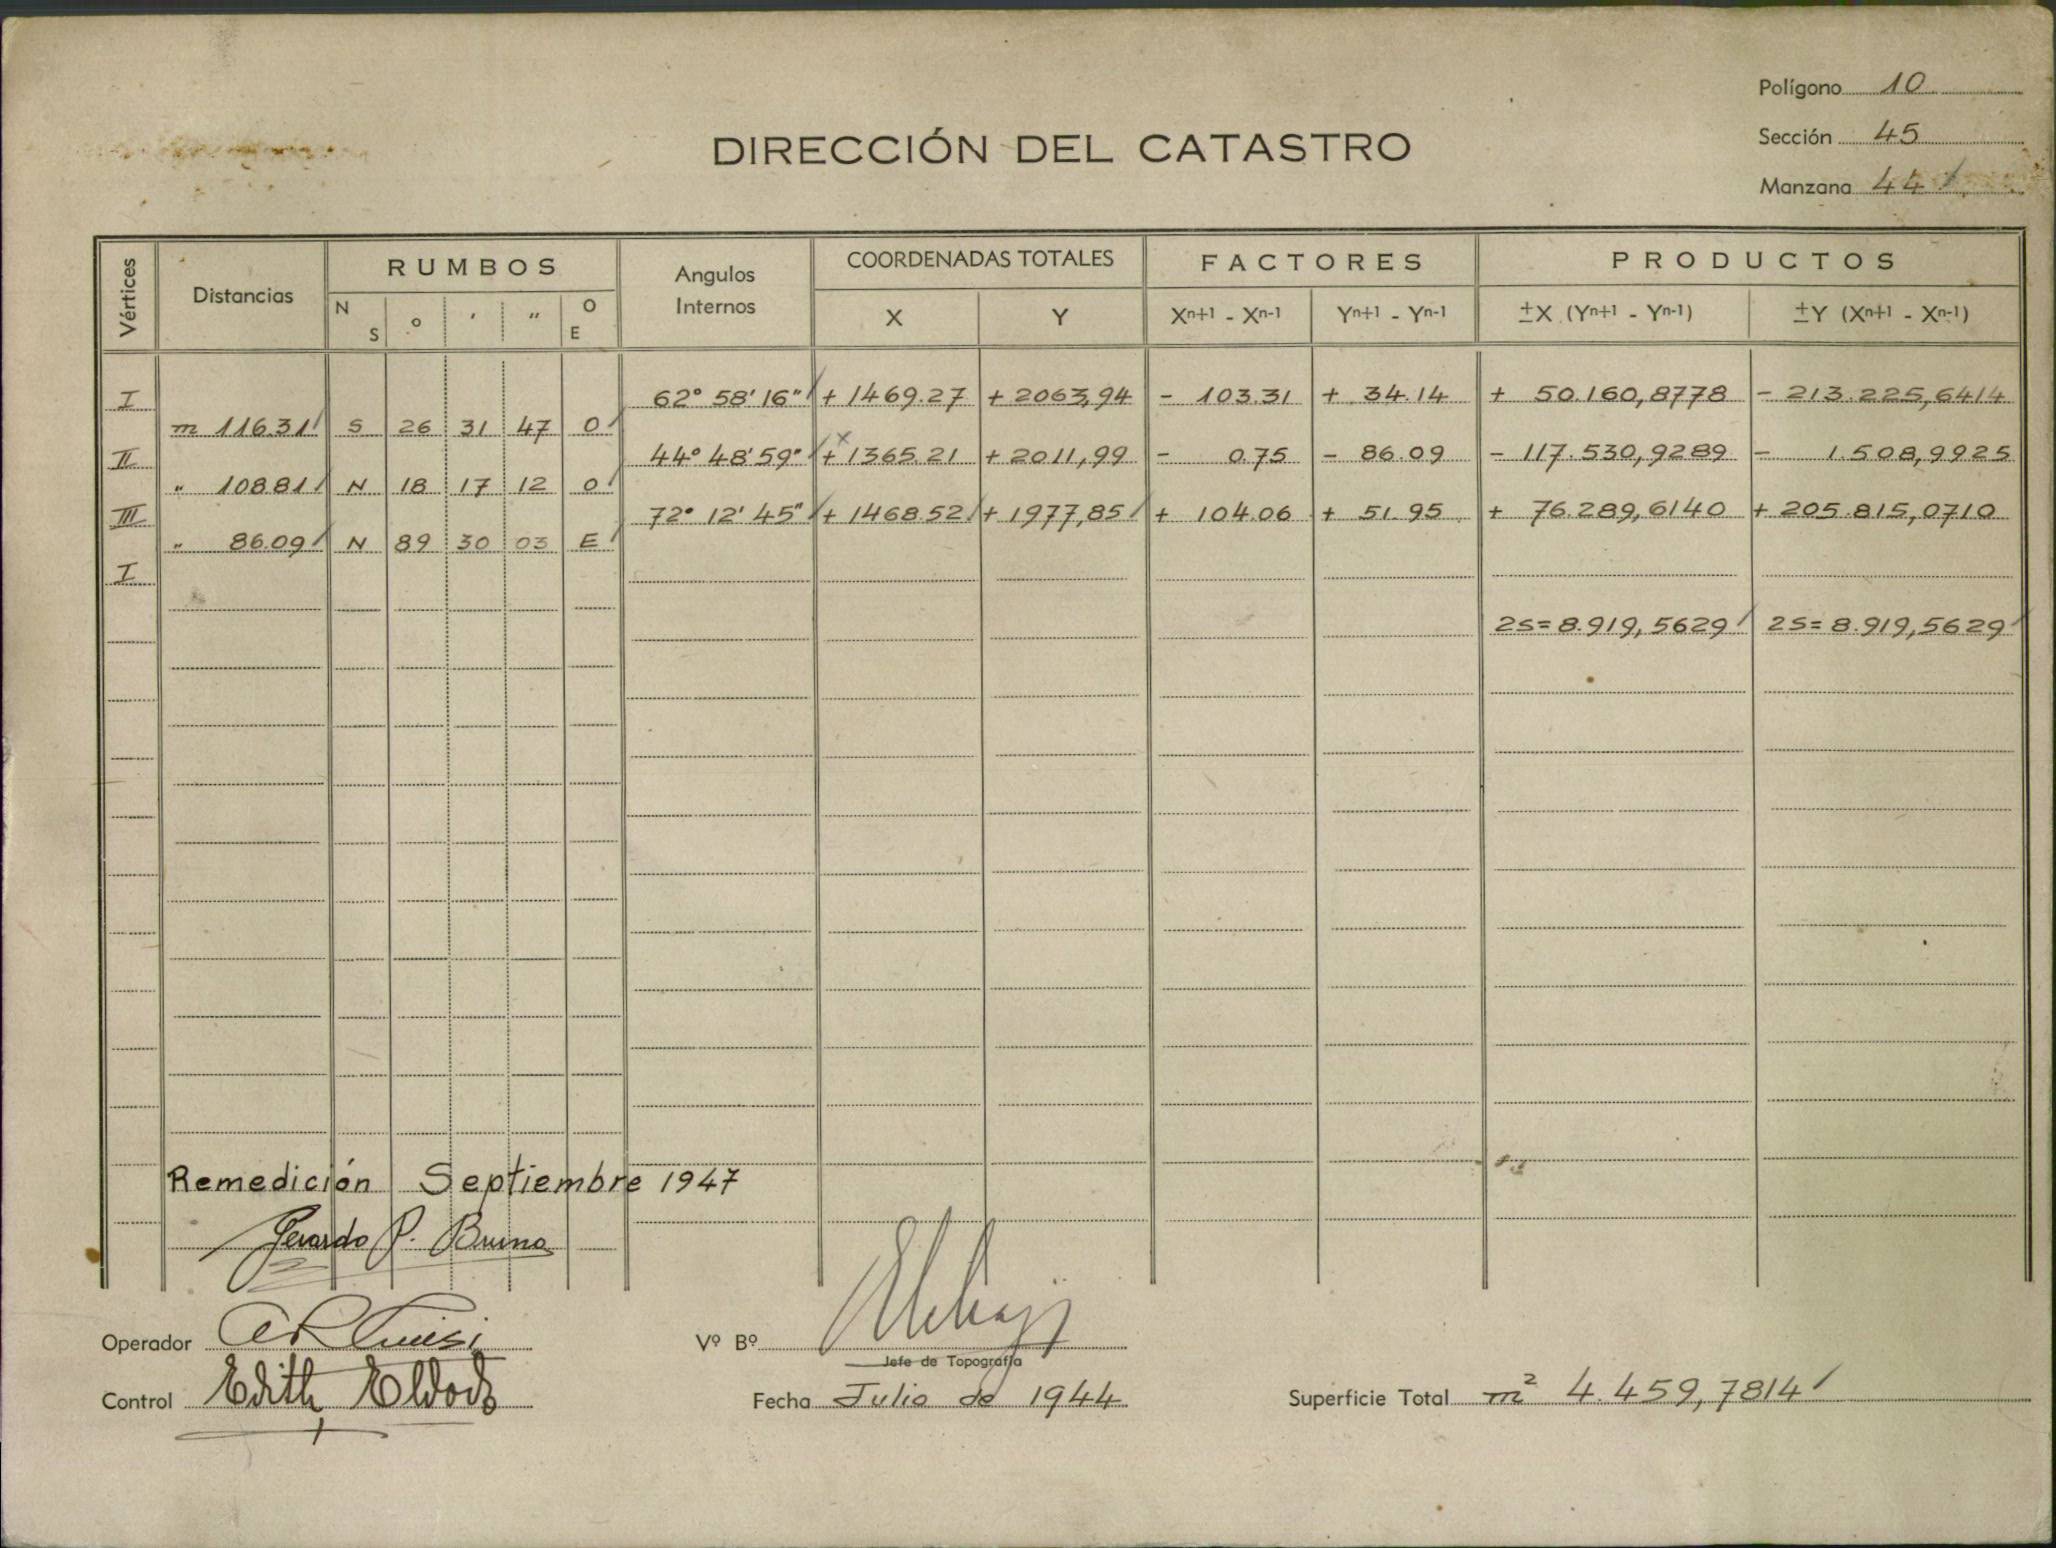 Polígono 10
Sección 45
Manzana 44
DIRECCIÓN DEL CATASTRO
Vértices Distancias RUMBOS Angulos Internos COORDENADAS TOTALES FACTORES PRODUCTOS
N S ° ' " O E X Y Xn+1 - Xn-1 Yn+1 - Yn-1 ±X (Yn+1 - Yn-1) ±Y (Xn+1 - Xn-1)
I 62° 58' 16" + 1469.27 + 2063,94 - 103.31 + 34.14 + 50.160,8778 - 213.225,6414
m 116.31 S 26 31 47 O
II 44° 48' 59" + 1365.21 + 2011,99 - 0.75 - 86.09 - 117.530,9289 - 1.508,9925
" 108.81 N 18 17 12 O
III 72° 12' 45" + 1468.52 + 1977,85 + 104.06 + 51.95 + 76.289,6140 + 205.815,0710
" 86.09 N 89 30 03 E
I
2S= 8.919,5629 2S= 8.919,5629
Remedición Septiembre 1947
Gerardo P. Bruno
Operador
Vº Bº
Jefe de Topografía
Control Edith
Fecha Julio de 1944
Superficie Total m² 4.459,7814